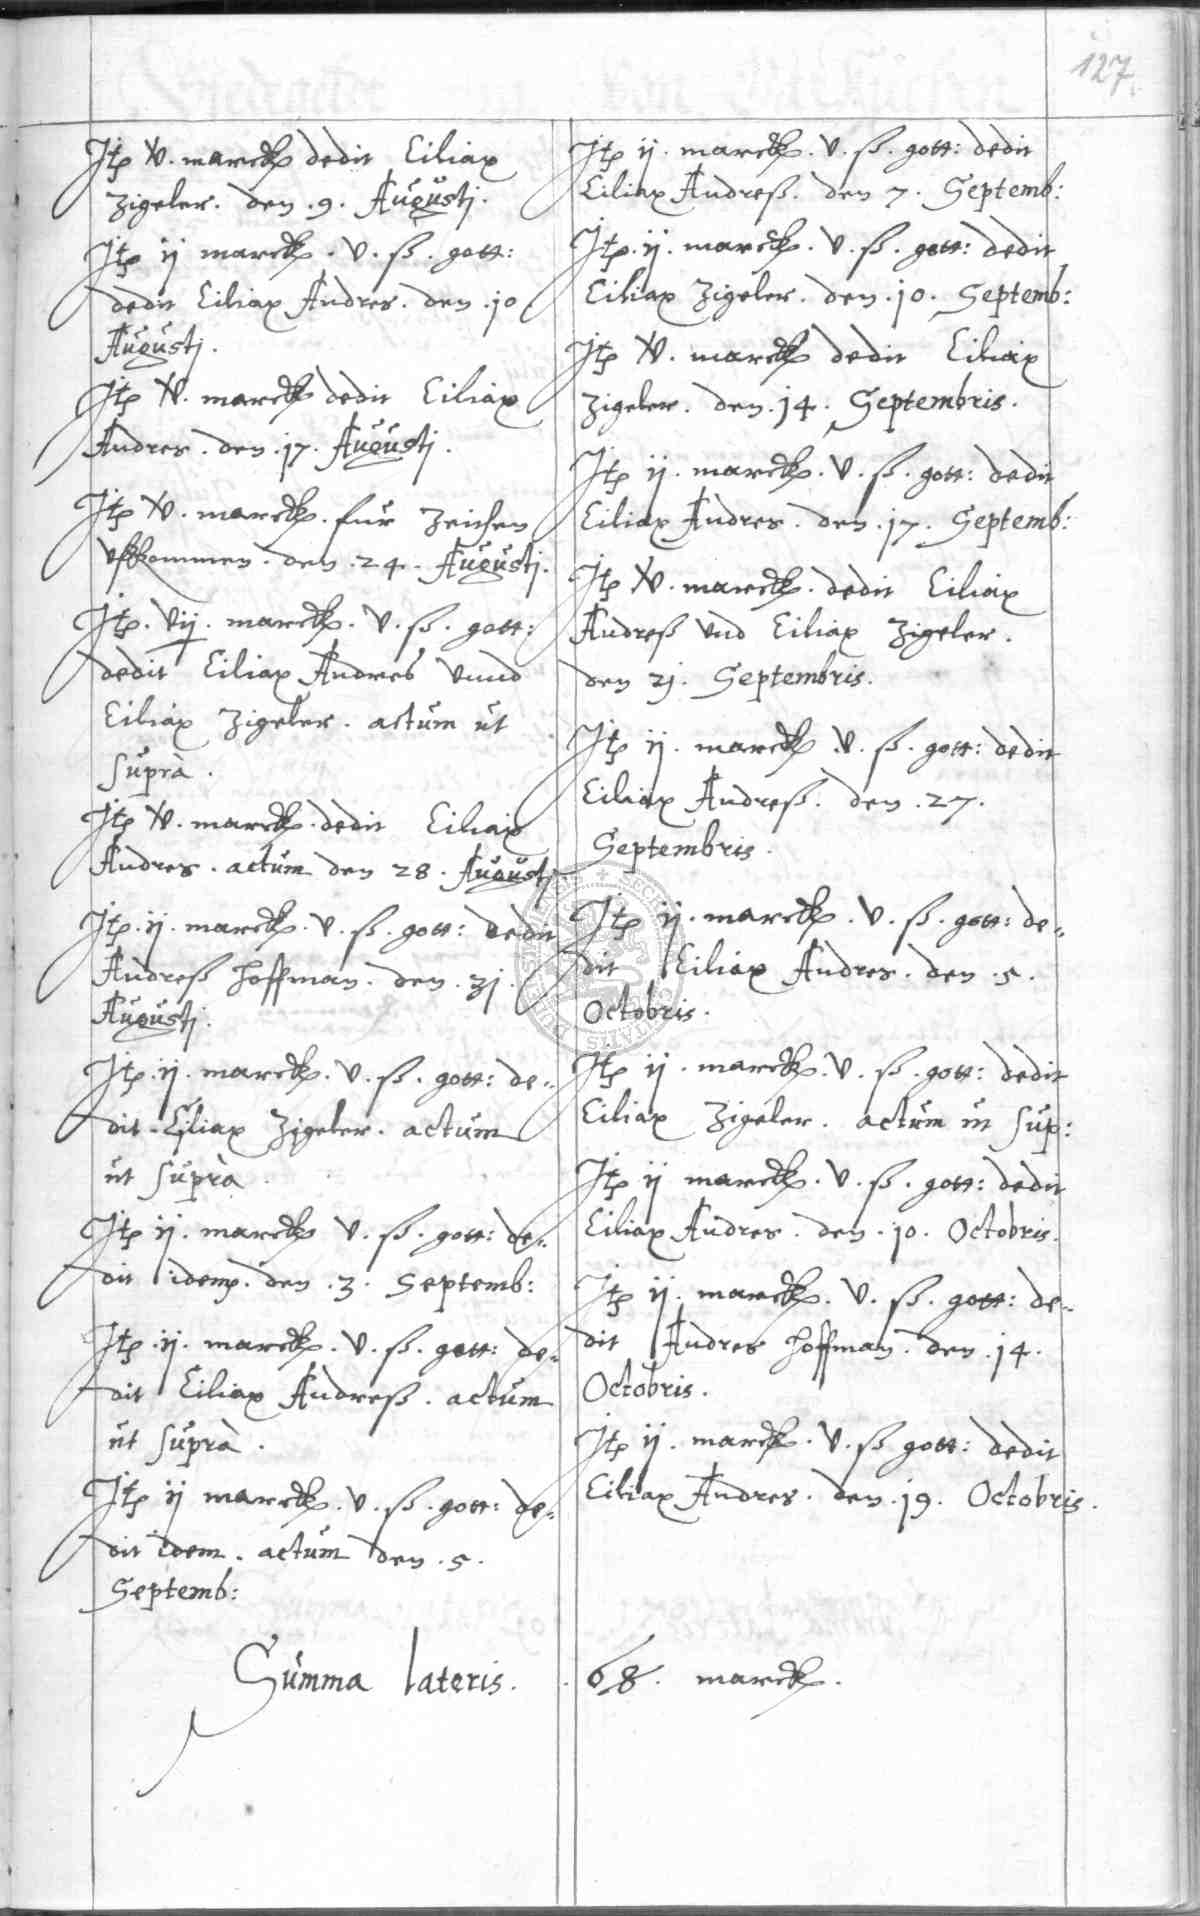 127
Jtp V. marck dedit Ciliax
Zigeler. den .9. Augustj.
Jtp ij marck . v . ß . gott:
dedit Ciliax Andres. den .10
Augustj.
Jtp V. marck dedit Ciliax
Andres . den .17. Augustj.
Jtp V. marck. fur Zeichen
vffkommen. den .24. Augustj.
Jtp. vij. marck. v. ß. gott:
dedit Ciliax Andres vnnd
Ciliax Zigeler. actum ut
suprà.
Jtp V. marck. dedit Ciliax
Andres . actum den 28. Augustj
Jtp. ij. marck. v. ß. gott: dedit
Andreß Hoffman. den .31.
Augustj.
Jtp. ij. marck. v. ß. gott: de-
dit Ciliax Zigeler. actum
ut suprà
Jtp ij. marck v. ß. gott: de-
dit idem. den .3. Septemb:
Jtp .ij. marck. v. ß. gott: de-
dit Ciliax Andreß. actum
ut suprà.
Jtp ij marck. v. ß. gott: de-
dit idem. actum den .5.
Septemb:
Jtp ij. marck. v. ß. gott: dedit
Ciliax Andreß. den 7. Septemb:
Jtp. ij. marck. v. ß. gott: dedit
Ciliax Zigeler. den .10. Septemb:
Jtp V. marck dedit Ciliax
Zigeler. den .14. Septembris.
Jtp ij. marck. v. ß. gott: dedit
Ciliax Andres. den .17. Septemb:
Jtp V. marck. dedit Ciliax
Andreß vnd Ciliax Zigeler.
den 21. Septembris.
Jtp ij. marck v. ß. gott: dedit
Ciliax Andreß. den .27.
Septembris.
Jtp ij. marck. v. ß. gott: de-
dit Ciliax Andres. den .5.
Octobris.
Jtp ij. marck. v. ß. gott: dedit
Ciliax Zigeler. actum ut sup:
Jtp ij marck. v. ß. gott: dedit
Ciliax Andres. den .10. Octobris.
Jtp ij. marck. v. ß. gott: de-
dit Andres Hoffman. den .14.
Octobris.
Jtp ij. marck. v. ß gott: dedit
Ciliax Andres. den .19. Octobris.
Summa lateris. 68. marck.